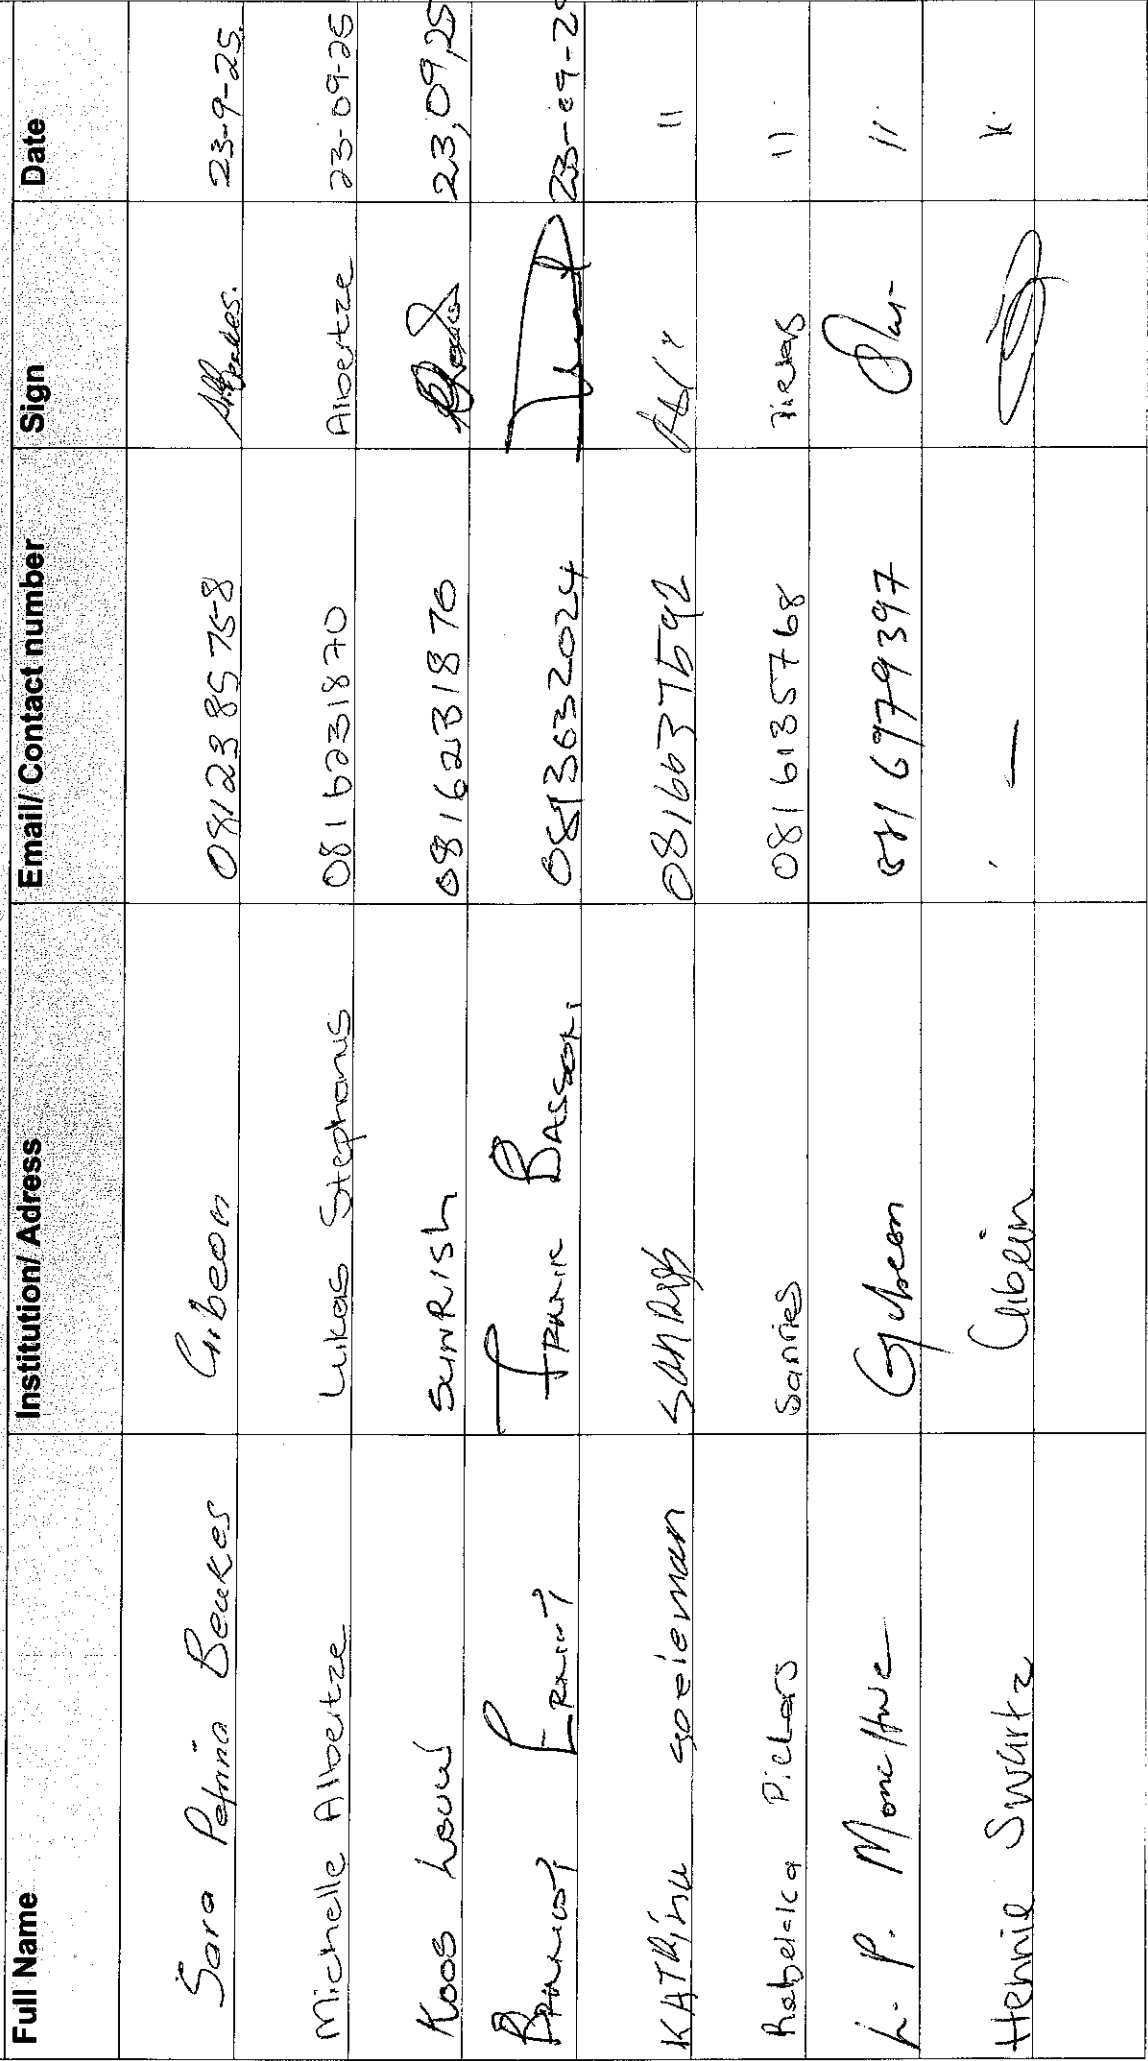 Full Name Institution/ Adress Email/ Contact number Sign Date
Sara Petrina Beukes Gibeon 0812385758 23-9-25.
Michelle Albertze Lukas Stephanus 0816231870 Albertze 23-09-25
Koos Louw SUNRISH 0816231870 23,09,25
FRANK BASSON 0813632024 23-09-2
KATRINA goeieman 0816637592 11
Pickers Sanries 0816135768 11
L. P. Gybeon 0816979397 11
Hennie Swartz Gibeon —